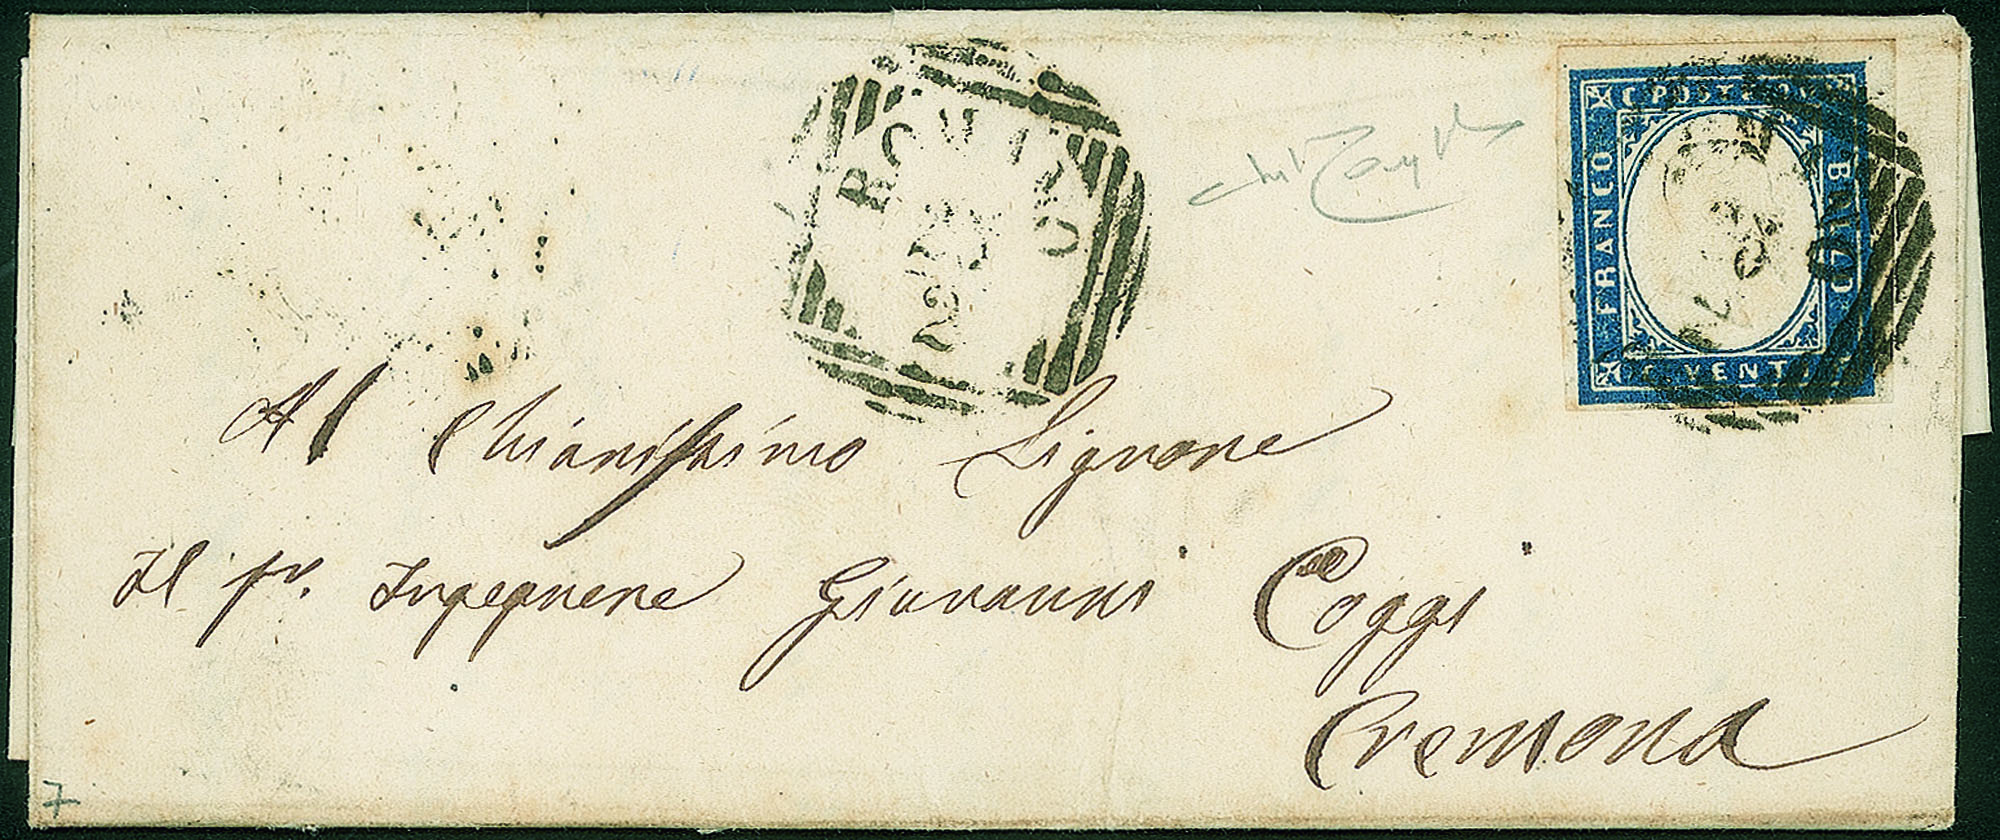 C POSTE
FRANCO
BOLLO
C. VENTI
Al Chiarissimo Signore
Il pr. Ingegnere Giovanni Coggi
Cremona
7